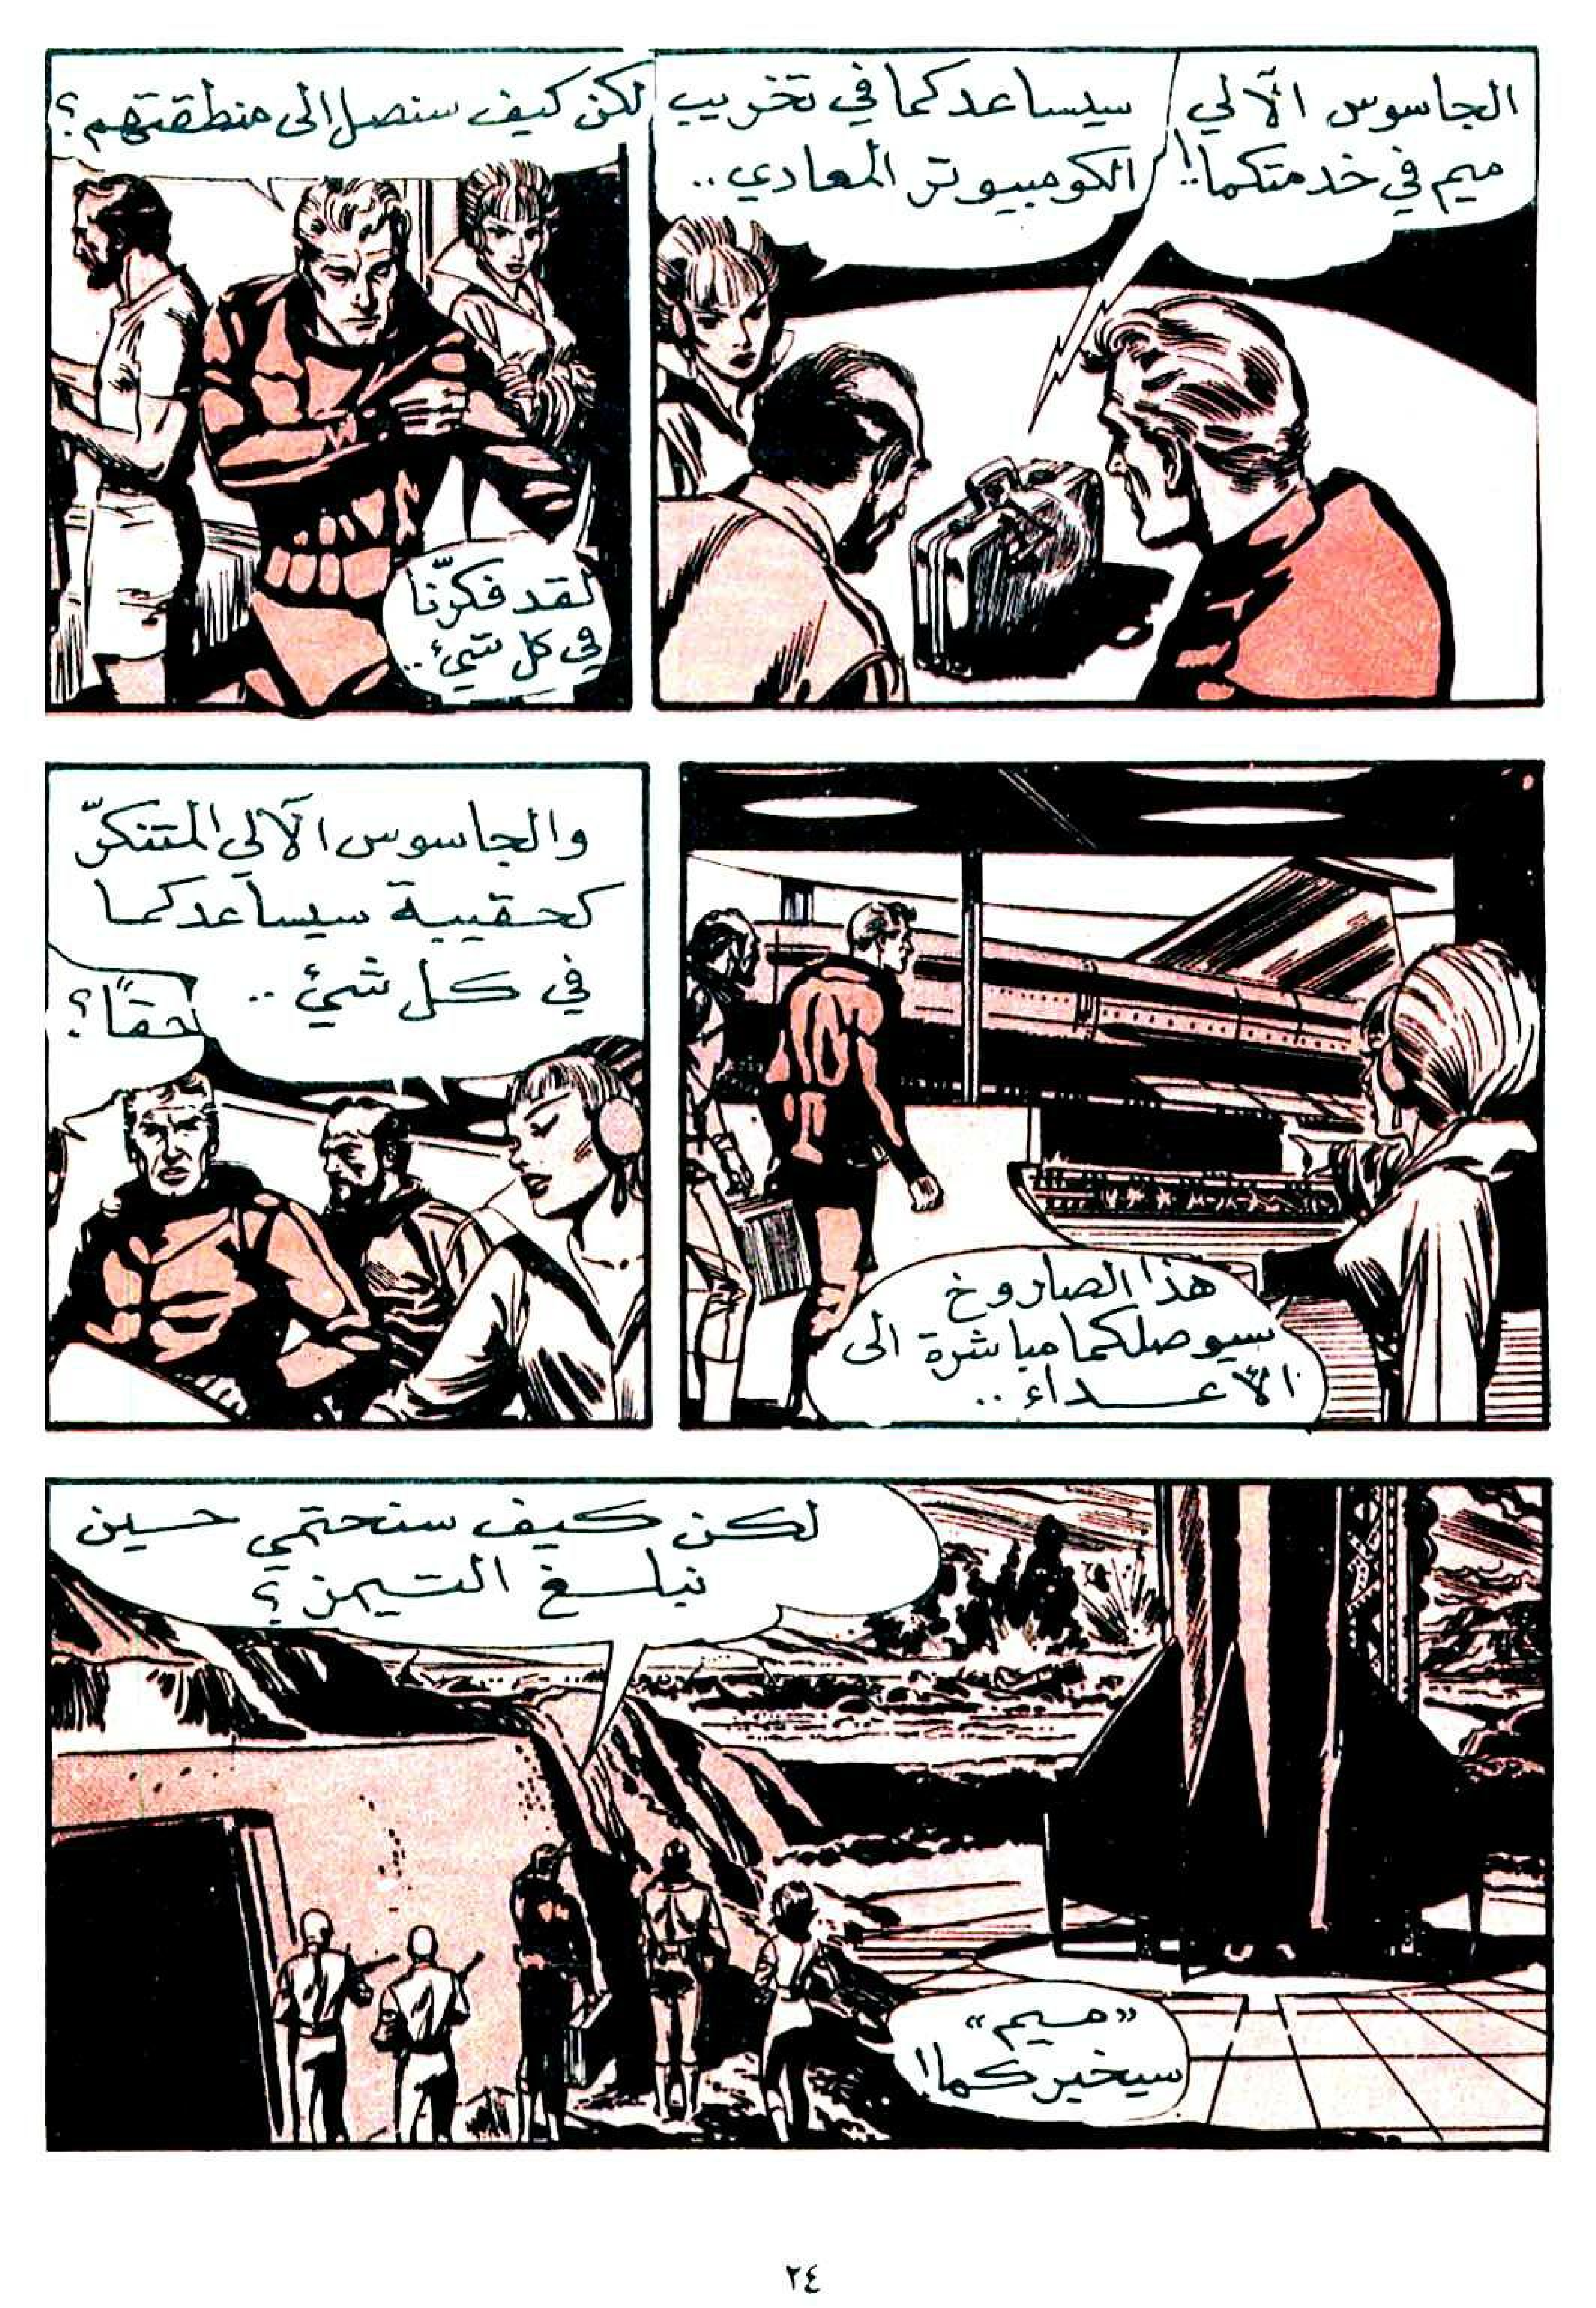 الجاسوس الآلي
ميم في خدمتكما..!
سيساعدكما في تخريب
الكومبيوتر المعادي..
لكن كيف سنصل الى منطقتهم؟
لقد فكرّنا
في كل شيء..
هذا الصاروخ
سيوصلكما مباشرة الى
الأعداء..
والجاسوس الآلي المتنكرّ
كحقيبة سيساعدكما
في كل شيء..
حقاً؟
لكن كيف سنحتمي حين
نبلغ التيمز؟
«ميم»
سيخبركما!
٢٤